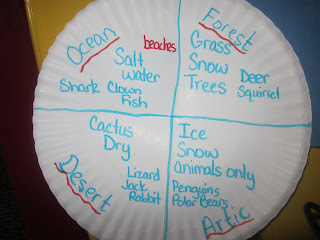 Ocean
beaches
Salt
water
Shark Clown
Fish
Forest
Grass
Snow Deer
Trees Squirrel
Cactus
Dry
Lizard
Jack
Rabbit
Desert
Ice
Snow
animals only
Penguins
Polar Bears.
Artic